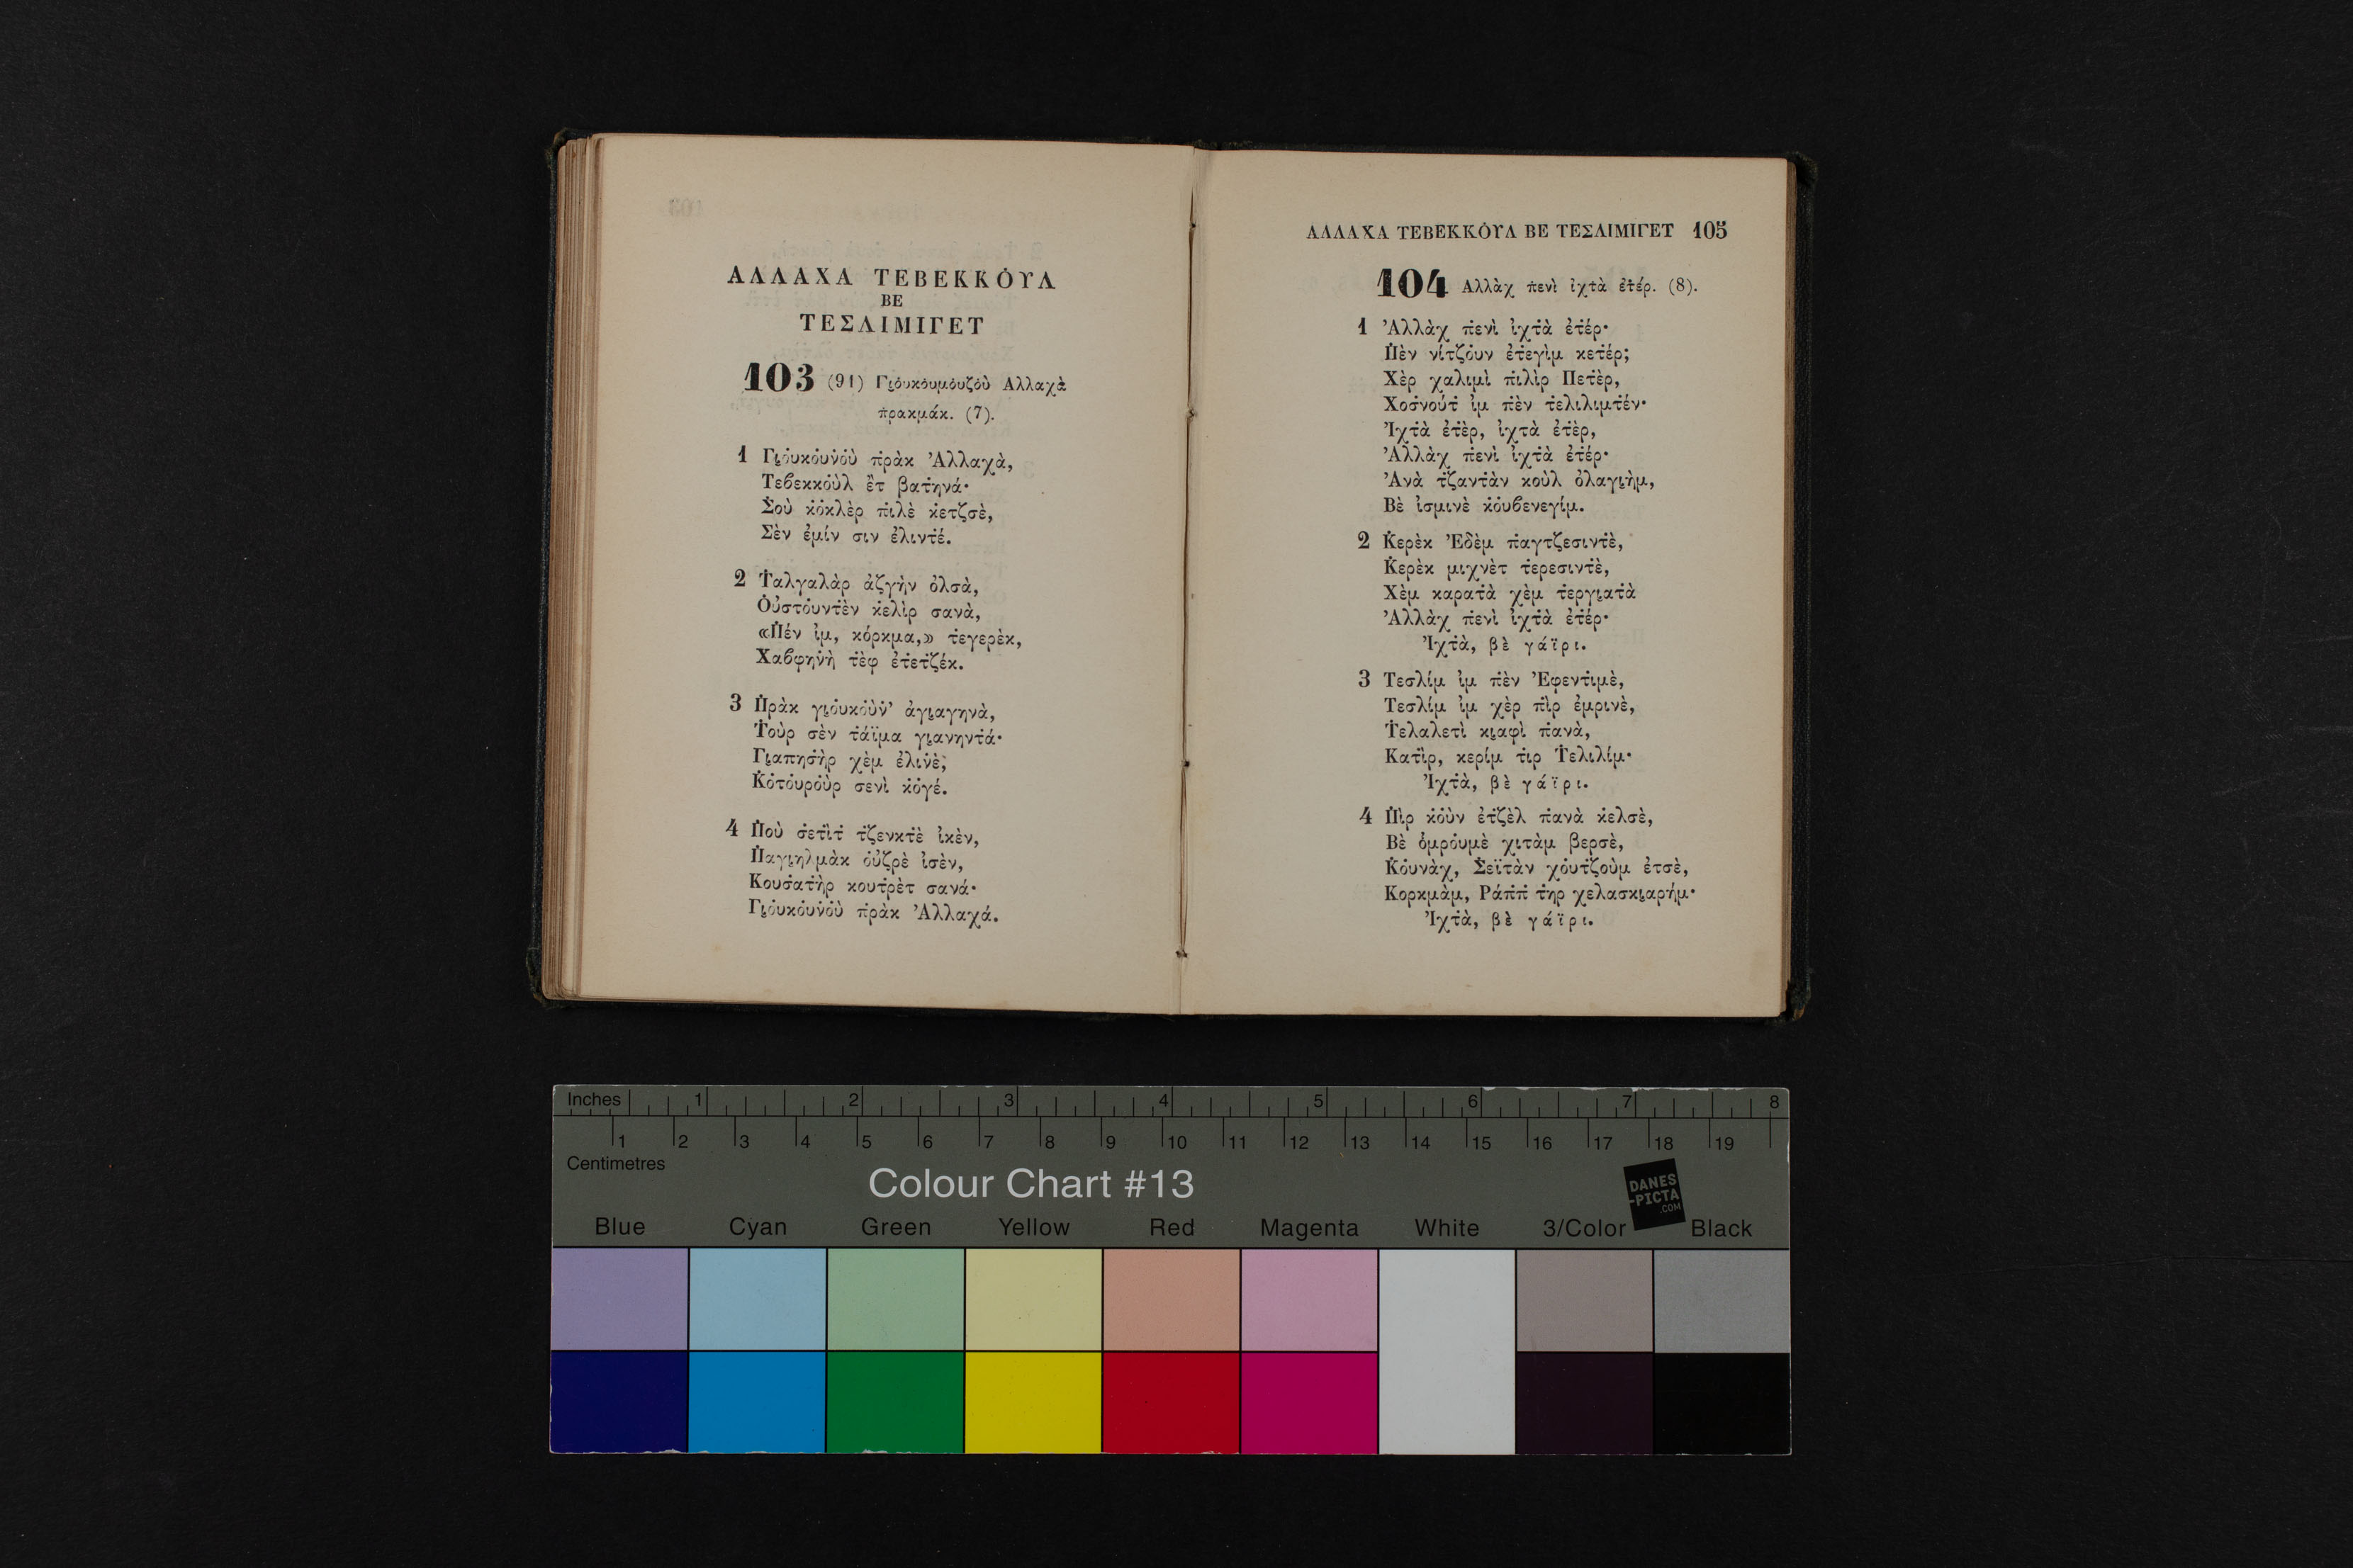 ΑΛΛΑΧΑ ΤΕΒΕΚΚΟΥ̇Λ
ΒΕ
ΤΕΣΛΙΜΙΓΕΤ
103 (91) Γιο̇υκο̇υμο̇υζο̇ὺ Αλλαχὰ
π̇ρακμάκ. (7).
1 Γιο̇υκο̇υν̇ο̇ὺ π̇ρὰκ Ἀλλαχὰ,
Τεβεκκο̇ὺλ ἒτ βατ̇ηνά·
Σ̇οὺ κ̇ο̇κλὲρ π̇ιλὲ κ̇ετζσὲ,
Σὲν ἐμίν σιν ἐλιντ̇έ.
2 Τ̇αλγαλὰρ ἀζγὴν ὀλσὰ,
Ο̇ὐστο̇υντ̇ὲν κ̇ελὶρ σανὰ,
«Π̇έν ἰμ, κόρκμα,» τ̇εγερὲκ,
Χαβφην̇ὴ τ̇ὲφ ἐτ̇ετ̇ζέκ.
3 Π̇ρὰκ γιο̇υκο̇ὺν̇' ἀγιαγηνὰ,
Τ̇οὺρ σὲν τ̇άϊμα γιανηντ̇ά·
Γιαπησ̇ὴρ χὲμ ἐλιν̇ὲ,
Κ̇ο̇τ̇ο̇υρο̇ὺρ σενὶ κ̇ο̇γέ.
4 Π̇οὺ σ̇ετ̇ὶτ̇ τ̇ζενκτ̇ὲ ἰκὲν,
Π̇αγιηλμὰκ ο̇ὐζρὲ ἰσὲν,
Κουσ̇ατ̇ὴρ κουτ̇ρὲτ σανά·
Γιο̇υκο̇υν̇ο̇ὺ π̇ρὰκ Ἀλλαχά.
ΑΛΛΑΧΑ ΤΕΒΕΚΚΟΥ̇Λ ΒΕ ΤΕΣΛΙΜΙΓΕΤ 105
104 Αλλὰχ π̇ενὶ ἰχτ̇ὰ ἐτ̇έρ. (8).
1 Ἀλλὰχ π̇ενὶ ἰχτ̇ὰ ἐτ̇έρ·
Π̇ὲν νίτζο̇υν ἐτ̇εγὶμ κετ̇έρ;
Χὲρ χαλιμὶ π̇ιλὶρ Πετ̇ὲρ,
Χοσ̇νούτ̇ ἰμ π̇ὲν τ̇ελιλιμτ̇έν·
Ἰχτ̇ὰ ἐτ̇ὲρ, ἰχτ̇ὰ ἐτ̇ὲρ,
Ἀλλὰχ π̇ενὶ ἰχτ̇ὰ ἐτ̇έρ·
Ἀνὰ τ̇ζαντ̇ὰν κοὺλ ὀλαγιὴμ,
Βὲ ἰσμινὲ κ̇ο̇υβενεγίμ.
2 Κ̇ερὲκ Ἐδὲμ π̇αγτζεσιντ̇ὲ,
Κ̇ερὲκ μιχνὲτ τ̇ερεσιντ̇ὲ,
Χὲμ καρατ̇ὰ χὲμ τ̇εργιατ̇ὰ
Ἀλλὰχ π̇ενὶ ἰχτ̇ὰ ἐτ̇έρ·
Ἰχτ̇ὰ, βὲ γάϊρι.
3 Τεσλίμ ἰμ π̇ὲν Ἐφεντ̇ιμὲ,
Τεσλίμ ἰμ χὲρ π̇ὶρ ἐμρινὲ,
Τ̇ελαλετὶ κιαφὶ π̇ανὰ,
Κατ̇ὶρ, κερίμ τ̇ιρ Τ̇ελιλίμ·
Ἰχτ̇ὰ, βὲ γάϊρι.
4 Π̇ὶρ κ̇ο̇ὺν ἐτ̇ζὲλ π̇ανὰ κ̇ελσὲ,
Βὲ ὀ̇μρο̇υμὲ χιτὰμ βερσὲ,
Κ̇ο̇υνὰχ, Σ̇εϊτὰν χο̇υτ̇ζοὺμ ἐτσὲ,
Κορκμὰμ, Ράπ̇π̇ τ̇ηρ χελασκιαρήμ·
Ἰχτ̇ὰ, βὲ γάϊρι.
Inches 1 2 3 4 5 6 7 8
1 2 3 4 5 6 7 8 9 10 11 12 13 14 15 16 17 18 19
Centimetres
Colour Chart #13
DANES
-PICTA
.COM
Blue Cyan Green Yellow Red Magenta White 3/Color Black